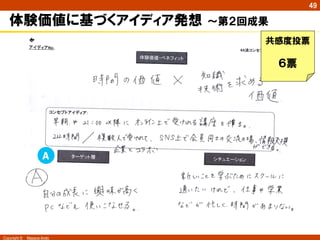 49
体験価値に基づくアイディア発想 ～第2回成果
共感度投票
6票
アイディアNo.
体験価値・ベネフィット
時間の価値 × 知識 技術 を求める価値
コンセプトアイディア:
早朝 or 21:00 以降に オンライン上で受けられる講座を作る。
24時間／複数人で受けれて、SNS上で会員同士の交流の場、情報交換ができる。
企業とコラボ
A
ターゲット層
シチュエーション
A
自分の成長に興味が高く
PCなども使いこなせる。
新しいことを学ぶためにスクールに
通いたいけれど、仕事や学業
などが忙しく時間があまりない。
Copyright ©